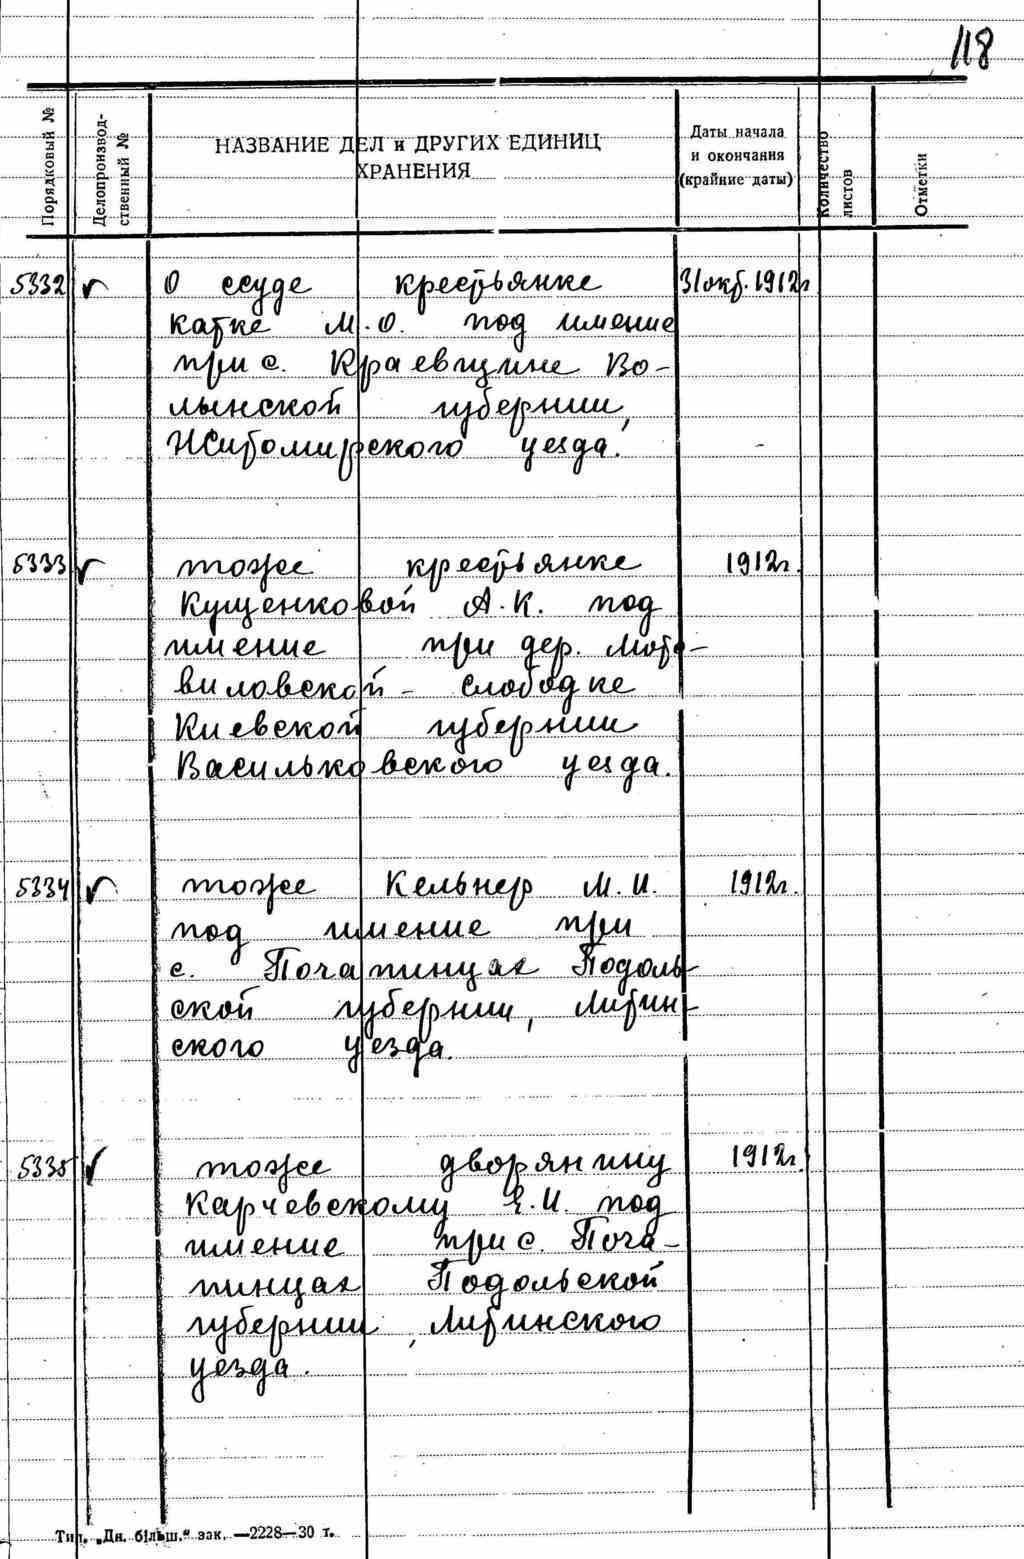 118
Порядковый №
Делопроизвод-
ственный №
НАЗВАНИЕ ДЕЛ и ДРУГИХ ЕДИНИЦ
ХРАНЕНИЯ
Даты начала
и окончания
(крайние даты)
Количество
листов
Отметки
5332 О ссуде крестьянке 31 окт. 1912г
Катке М.О. под имение
при с. Краевщине Во-
лынской губернии,
Житомирского уезда.
5333 тоже крестьянке 1912г.
Кущенковой А.К. под
имение при дер. Мото-
виловской - Слободке
Киевской губернии
Васильковского уезда.
5334 тоже Кельнер М.И. 1912г.
под имение при
с. Почапинцах Подоль-
ской губернии, Литин-
ского уезда.
5335 тоже дворянину 1912г.
Карчевскому Е.И. под
имение при с. Поча-
пинцах Подольской
губернии, Литинского
уезда.
Тип. „Дн. більш." зак. —2228—30 т.